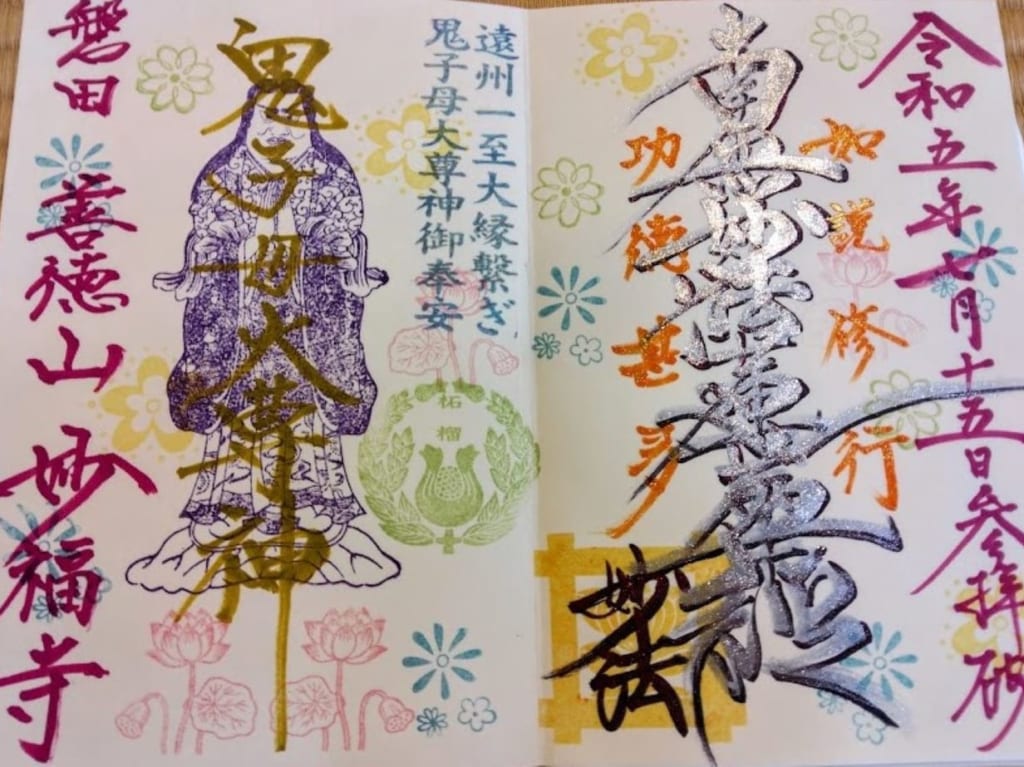 令和五年七月十五日参拝砌
如説修行
南無妙法蓮華経
功徳甚多
妙法
遠州一至大縁繋ぎ
鬼子母大尊神御奉安
柘榴
鬼子母大尊神
磐田 善徳山 妙福寺